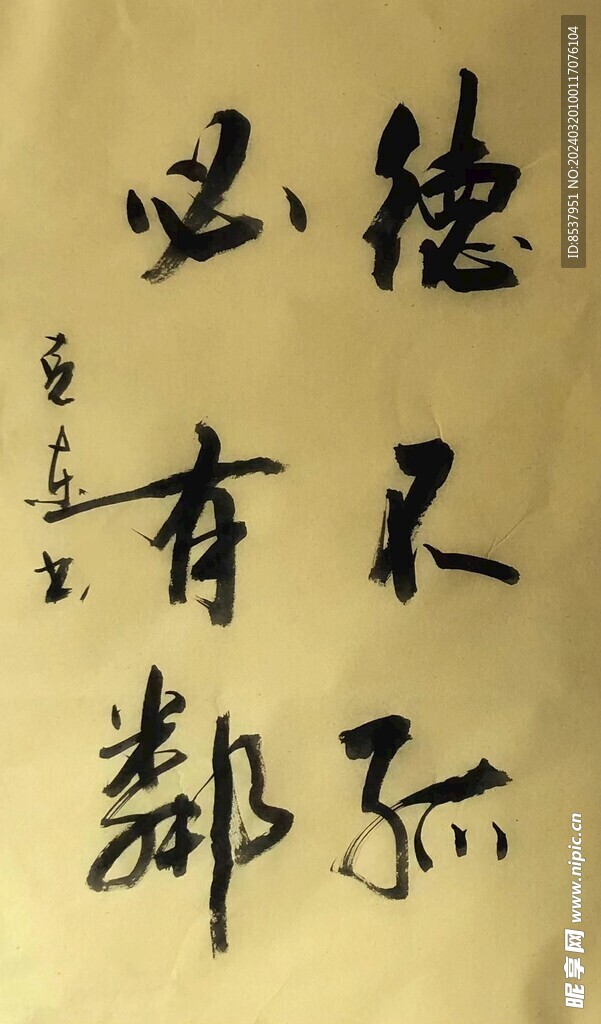 德不孤
必有鄰
書
ID:8537951 NO:20240320100117076104
昵享网 www.nipic.cn